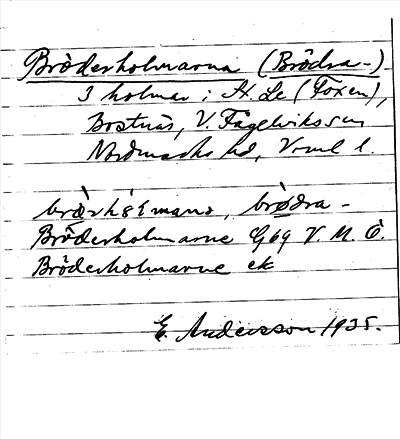 Bröderholmarna (Brödra-)
3 holmar i St. Le (Foxen),
Bastnäs, V. Fågelviks sn
Nordmarks hd, Vrml l.
brødra-
Bröderholmarne G69 V. M. Ö.
Bröderholmarne ek
E. Andersson 1935.